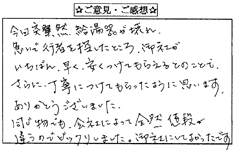 ☆ご意見・ご感想☆
今回突然 給湯器が壊れ、
急いで行者を探したところ、御社が
いちばん、早く、安くつけてもらえるとのことで、
さらに、丁寧につけてもらったように思います。
ありがとうございました。
同じ物でも、会社によって全然値段が
違うのでビックリしました。御社にしてよかったです